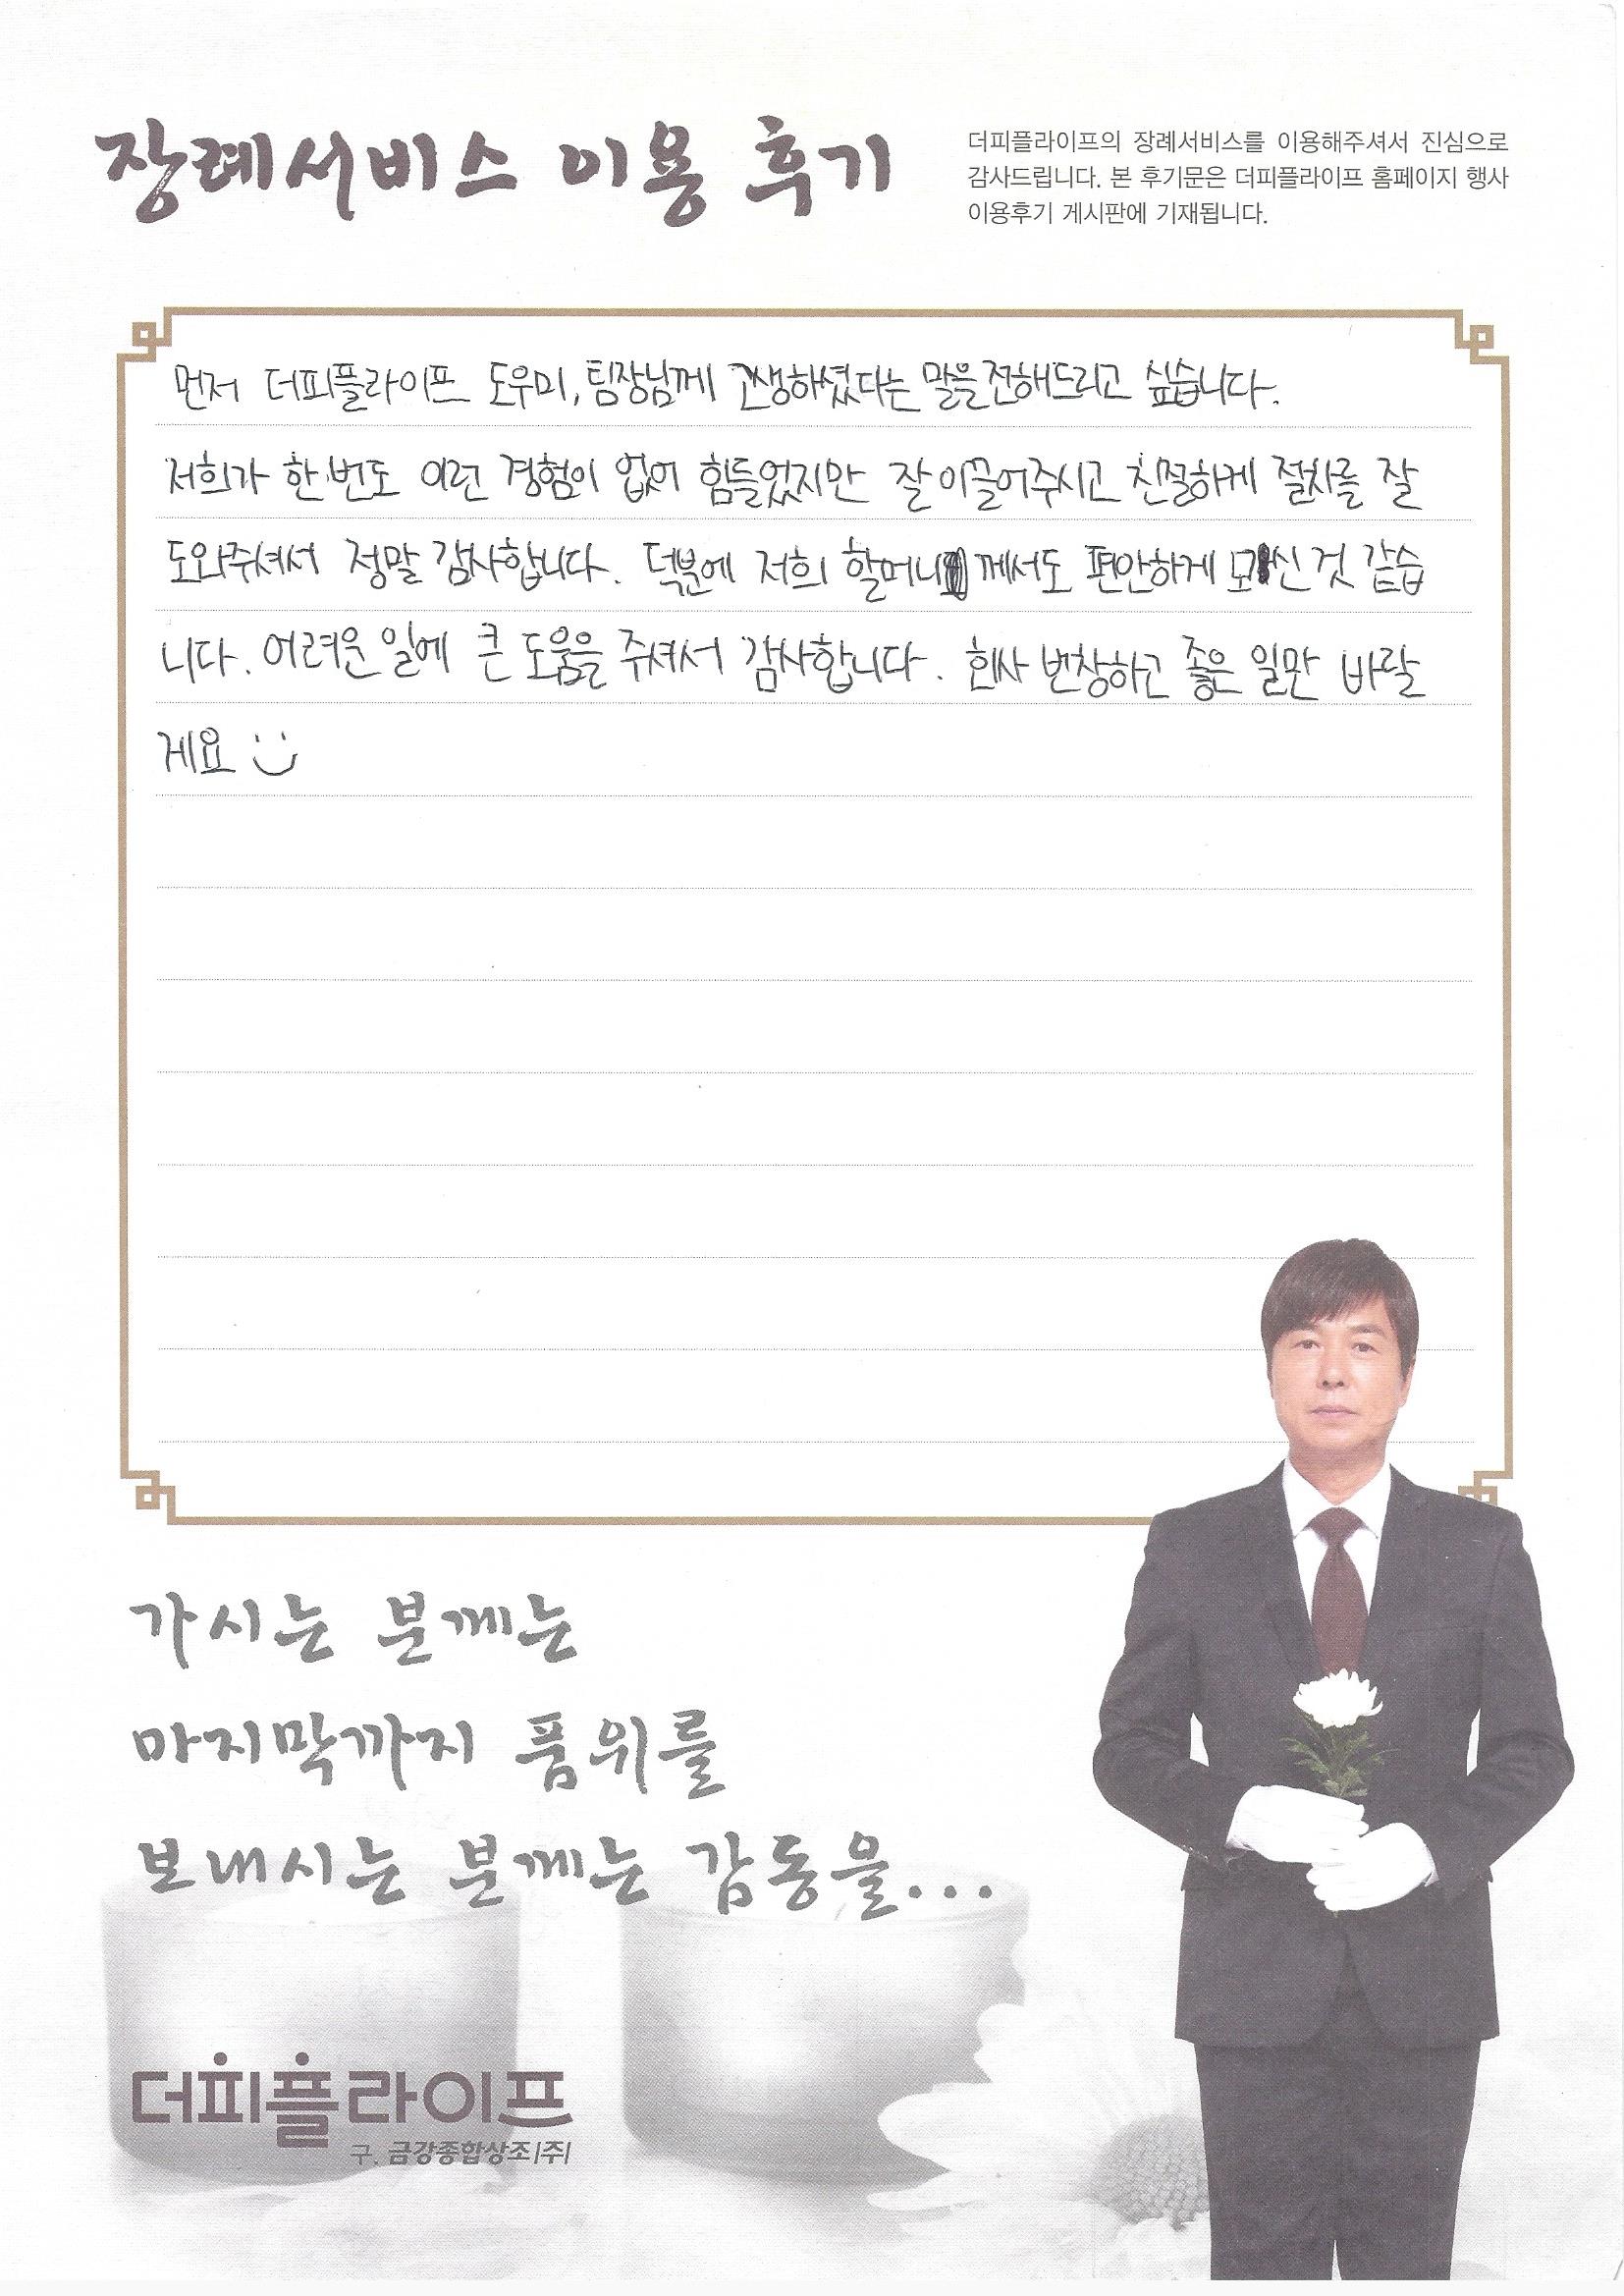 장례서비스 이용 후기
더피플라이프의 장례서비스를 이용해주셔서 진심으로
감사드립니다. 본 후기문은 더피플라이프 홈페이지 행사
이용후기 게시판에 기재됩니다.
먼저 더피플라이프 도우미, 팀장님께 고생하셨다는 말을 전해드리고 싶습니다.
저희가 한번도 이런 경험이 없어 힘들었지만 잘 이끌어주시고 친절하게 절차를 잘
도와주셔서 정말 감사합니다. 덕분에 저희 할머니께서도 편안하게 모신 것 같습
니다. 어려운 일에 큰 도움을 주셔서 감사합니다. 회사 번창하고 좋은 일만 바랄
게요
가시는 분께는
마지막까지 품위를
보내시는 분께는 감동을...
더피플라이프
구. 금강종합상조|주|